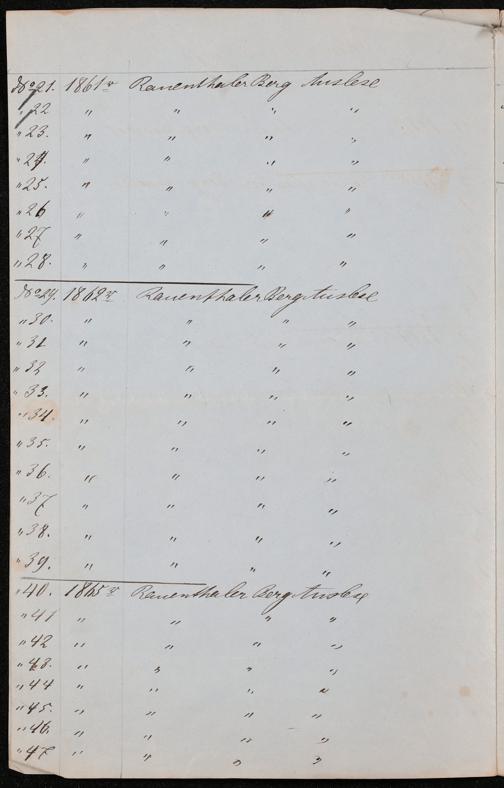 No 21. 1861r Rauenthaler Berg Auslese
" 22 " " " "
" 23. " " " "
" 24. " " " "
" 25. " " " "
" 26 " " " "
" 27 " " " "
" 28. " " " "
No 29. 1862r Rauenthaler Berg Auslese
" 30. " " " "
" 31 " " " "
" 32 " " " "
" 33. " " " "
" 34. " " " "
" 35. " " " "
" 36. " " " "
" 37 " " " "
" 38. " " " "
" 39. " " " "
" 40. 1865r Rauenthaler Berg Auslese
" 41 " " " "
" 42 " " " "
" 43. " " " "
" 44 " " " "
" 45. " " " "
" 46. " " " "
" 47 " " " "